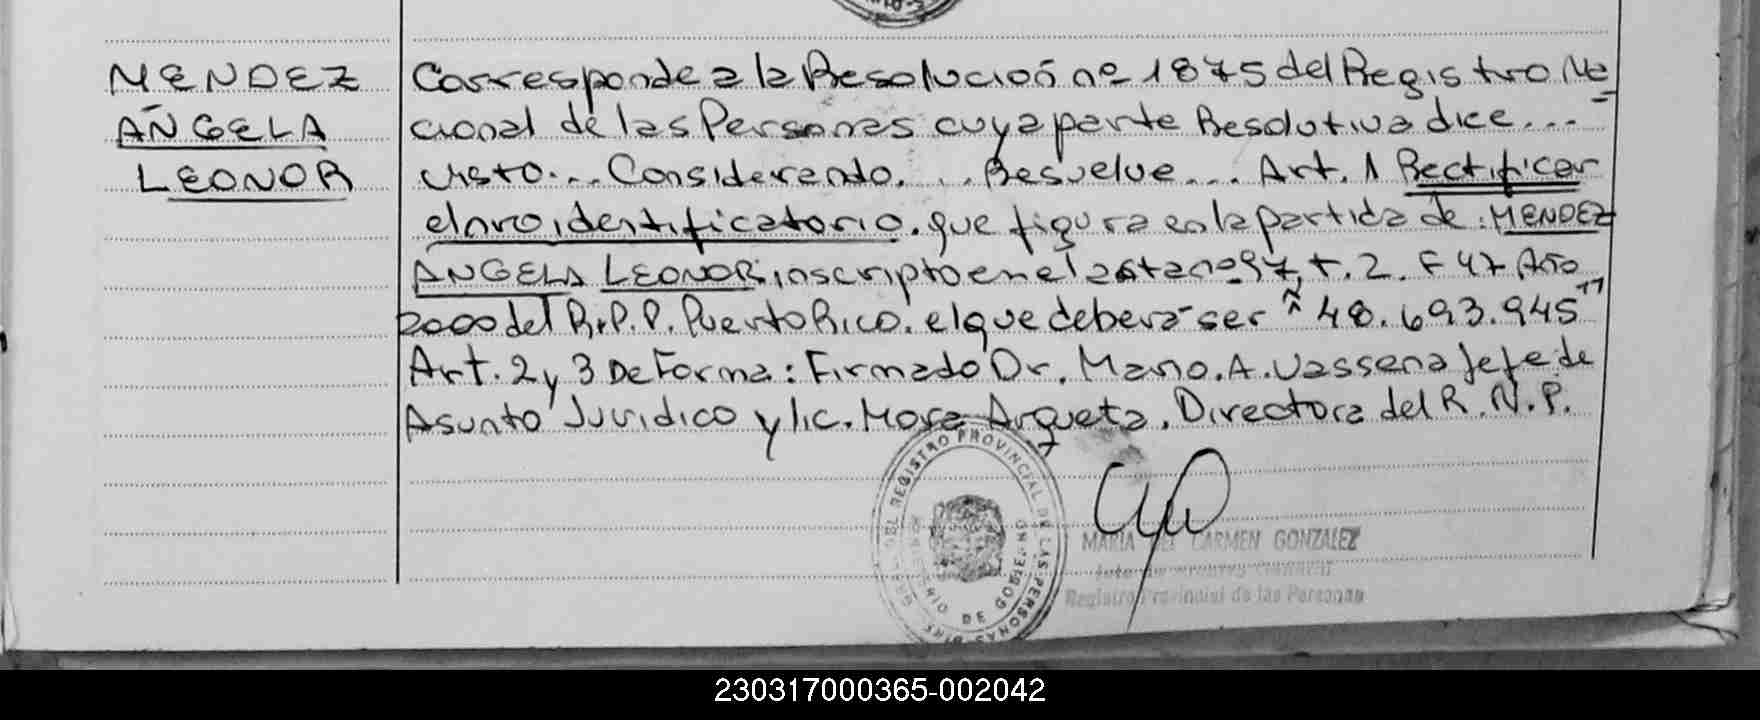 MENDEZ
ANGELA
LEONOR
Corresponde a la Resolución nº 1875 del Registro Na=
cional de las Personas cuya parte Resolutiva dice...
visto... Considerando... Resuelve... Art. 1 Rectificar
el nro identificatorio. que figura en la partida de: MENDEZ
ANGELA LEONOR: inscripto en el acta nº 97, t. 2. F 47 Año
2000 del R.P.P. Puerto Rico. el que deberá ser " 48.693.945"
Art. 2 y 3 De Forma: Firmado Dr. Mario. A. Vassena Jefe de
Asunto Juridico y lic. Mora Arqueta. Directora del R.N.P.
REGISTRO PROVINCIAL DE LAS PERSONAS
DE GOBIERNO
MARIA DEL CARMEN GONZALEZ
Registro Provincial de las Personas
230317000365-002042